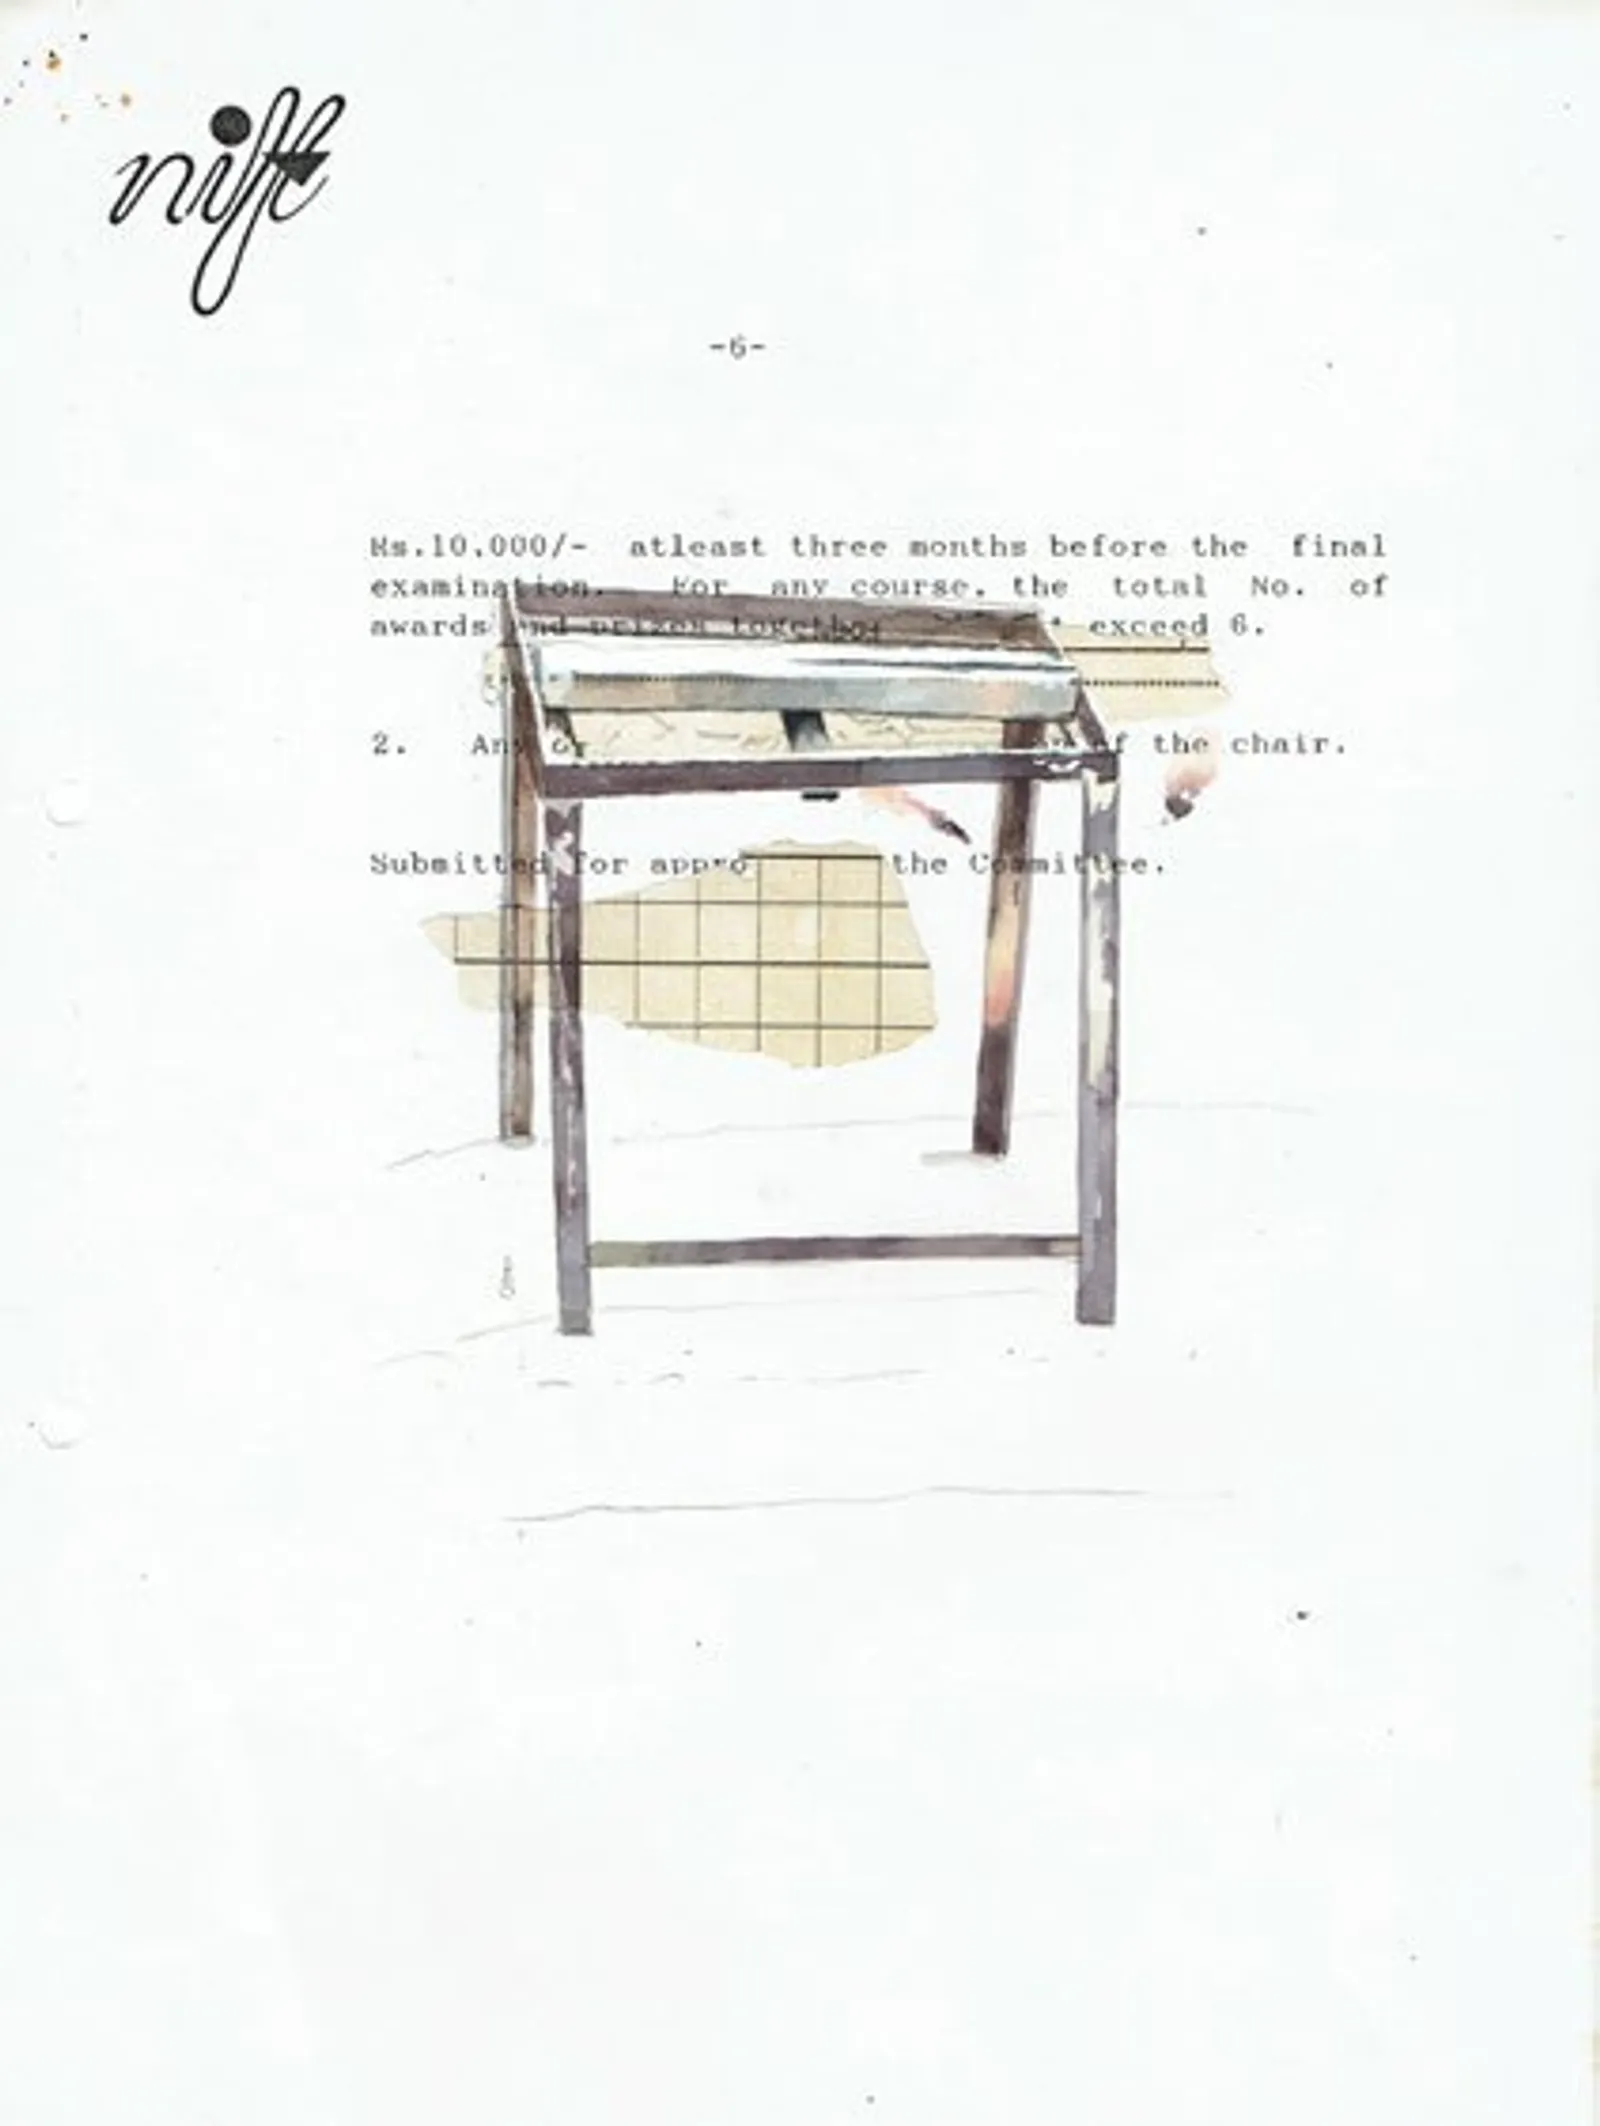 nift
-6-
Rs.10,000/- atleast three months before the final
examination. For any course, the total No. of
awards and prizes together exceed 6.
2. Any of the chair.
Submitted for the Committee.